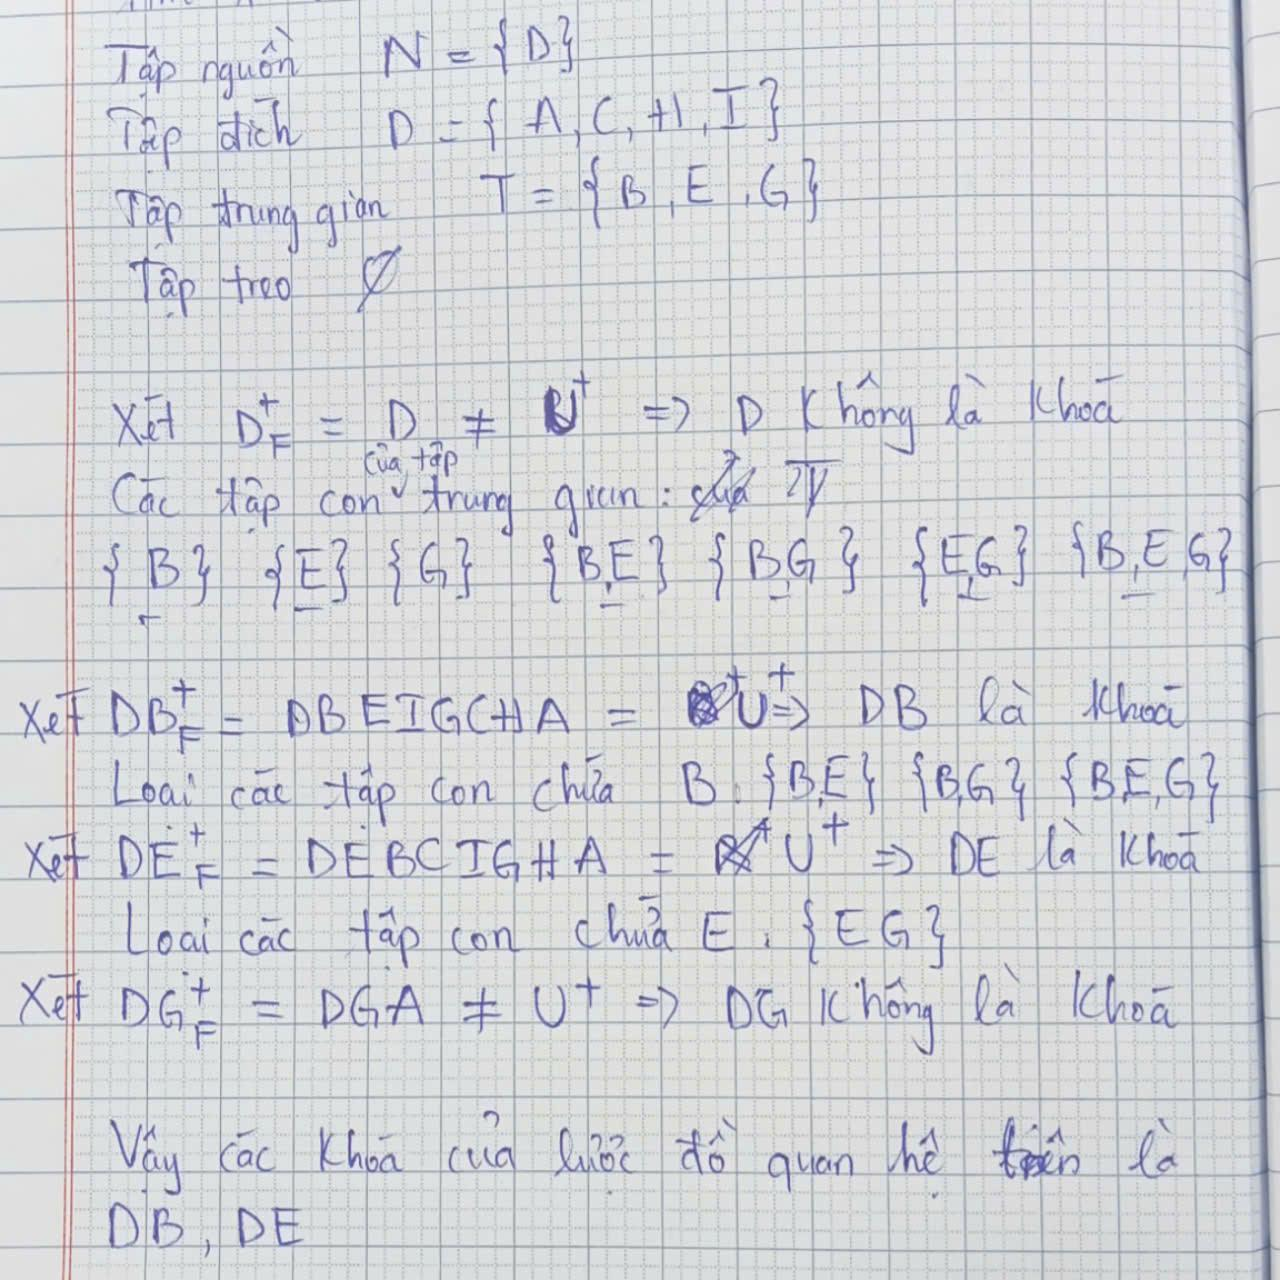 Tập nguồn N = {D}
Tập đích D = { A, C, H, I }
Tập trung gian T = { B, E, G}
Tập treo ∅
Xét D⁺F = D ≠ U⁺ => D không là khoá
của tập
Các tập con ˅ trung gian:
{ B} {E} {G} { B,E } { B,G } {E,G} {B,E,G}
Xét DB⁺F = DBEIGCHA = U⁺ => DB là khoá
Loại các tập con chứa B. {B,E} {B,G} {B,E,G}
Xét DE⁺F = DEBCIGHA = U⁺ => DE là khoá
Loại các tập con chứa E. {EG}
Xét DG⁺F = DGA ≠ U⁺ => DG không là khoá
Vậy các khoá của lược đồ quan hệ trên là
DB, DE